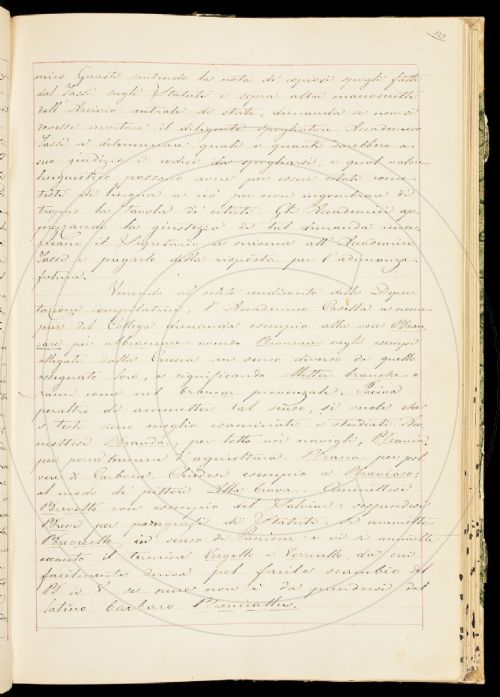 159
mico Guasti sentendo la nota di copiosi spogli fatti
dal Tassi sugli Statuti e sopra altri manoscritti
dell'Archivio centrale di stato, dimanda se non si
dovesse invitare il diligente spogliatore Accademico
Tassi a determinare quali e quanti sarebbero a
suo giudizio i codici da spogliarsi, e qual valore
linguistico possano avere per essere citati come
testi di lingua a ciò per non ingombrare di
troppo la tavola di citati. Gli Accademici ap
provando la giustezza di tal dimanda
ficano il Segretario a scriverne all'Accademico
Tassi e pregarlo della risposta per l'adunanza
futura.
Venendo al solito rendiconto della Depu
tazione compilatrice, l'Accademico Casella a nome
pure del Collega dimanda esempio alla voce Bran
care per abbrancare avendo Brancare negli esempi
allegati dalla Crusca un senso diverso da quello
assegnato loro, e significando Metter branche o
rami come nel brancar provenzale. Pareva
peraltro di ammetter tal senso, si vuole che
i testi sieno meglio esaminati e studiati. Am
mettesi Branda, per letto nei navigli, Brania,
per porca termine d'agricoltura. Brasca per pol
vere di Carbone. Chiedesi esempio a Bravioso;
al modo di pittori Alla brava. Ammettesi
Brevetto con esempio del Salvini: sospendesi
Breve per paragrafi di Statuti. Si ammette
Brevicello, in senso di Verrone e vi si ammette
accanto il termine Vergella o Verrucello, da cui
facilmente deriva pel facile scambio del
B a V se pure non è da prendersi dal
latino barbaro Breviattus.